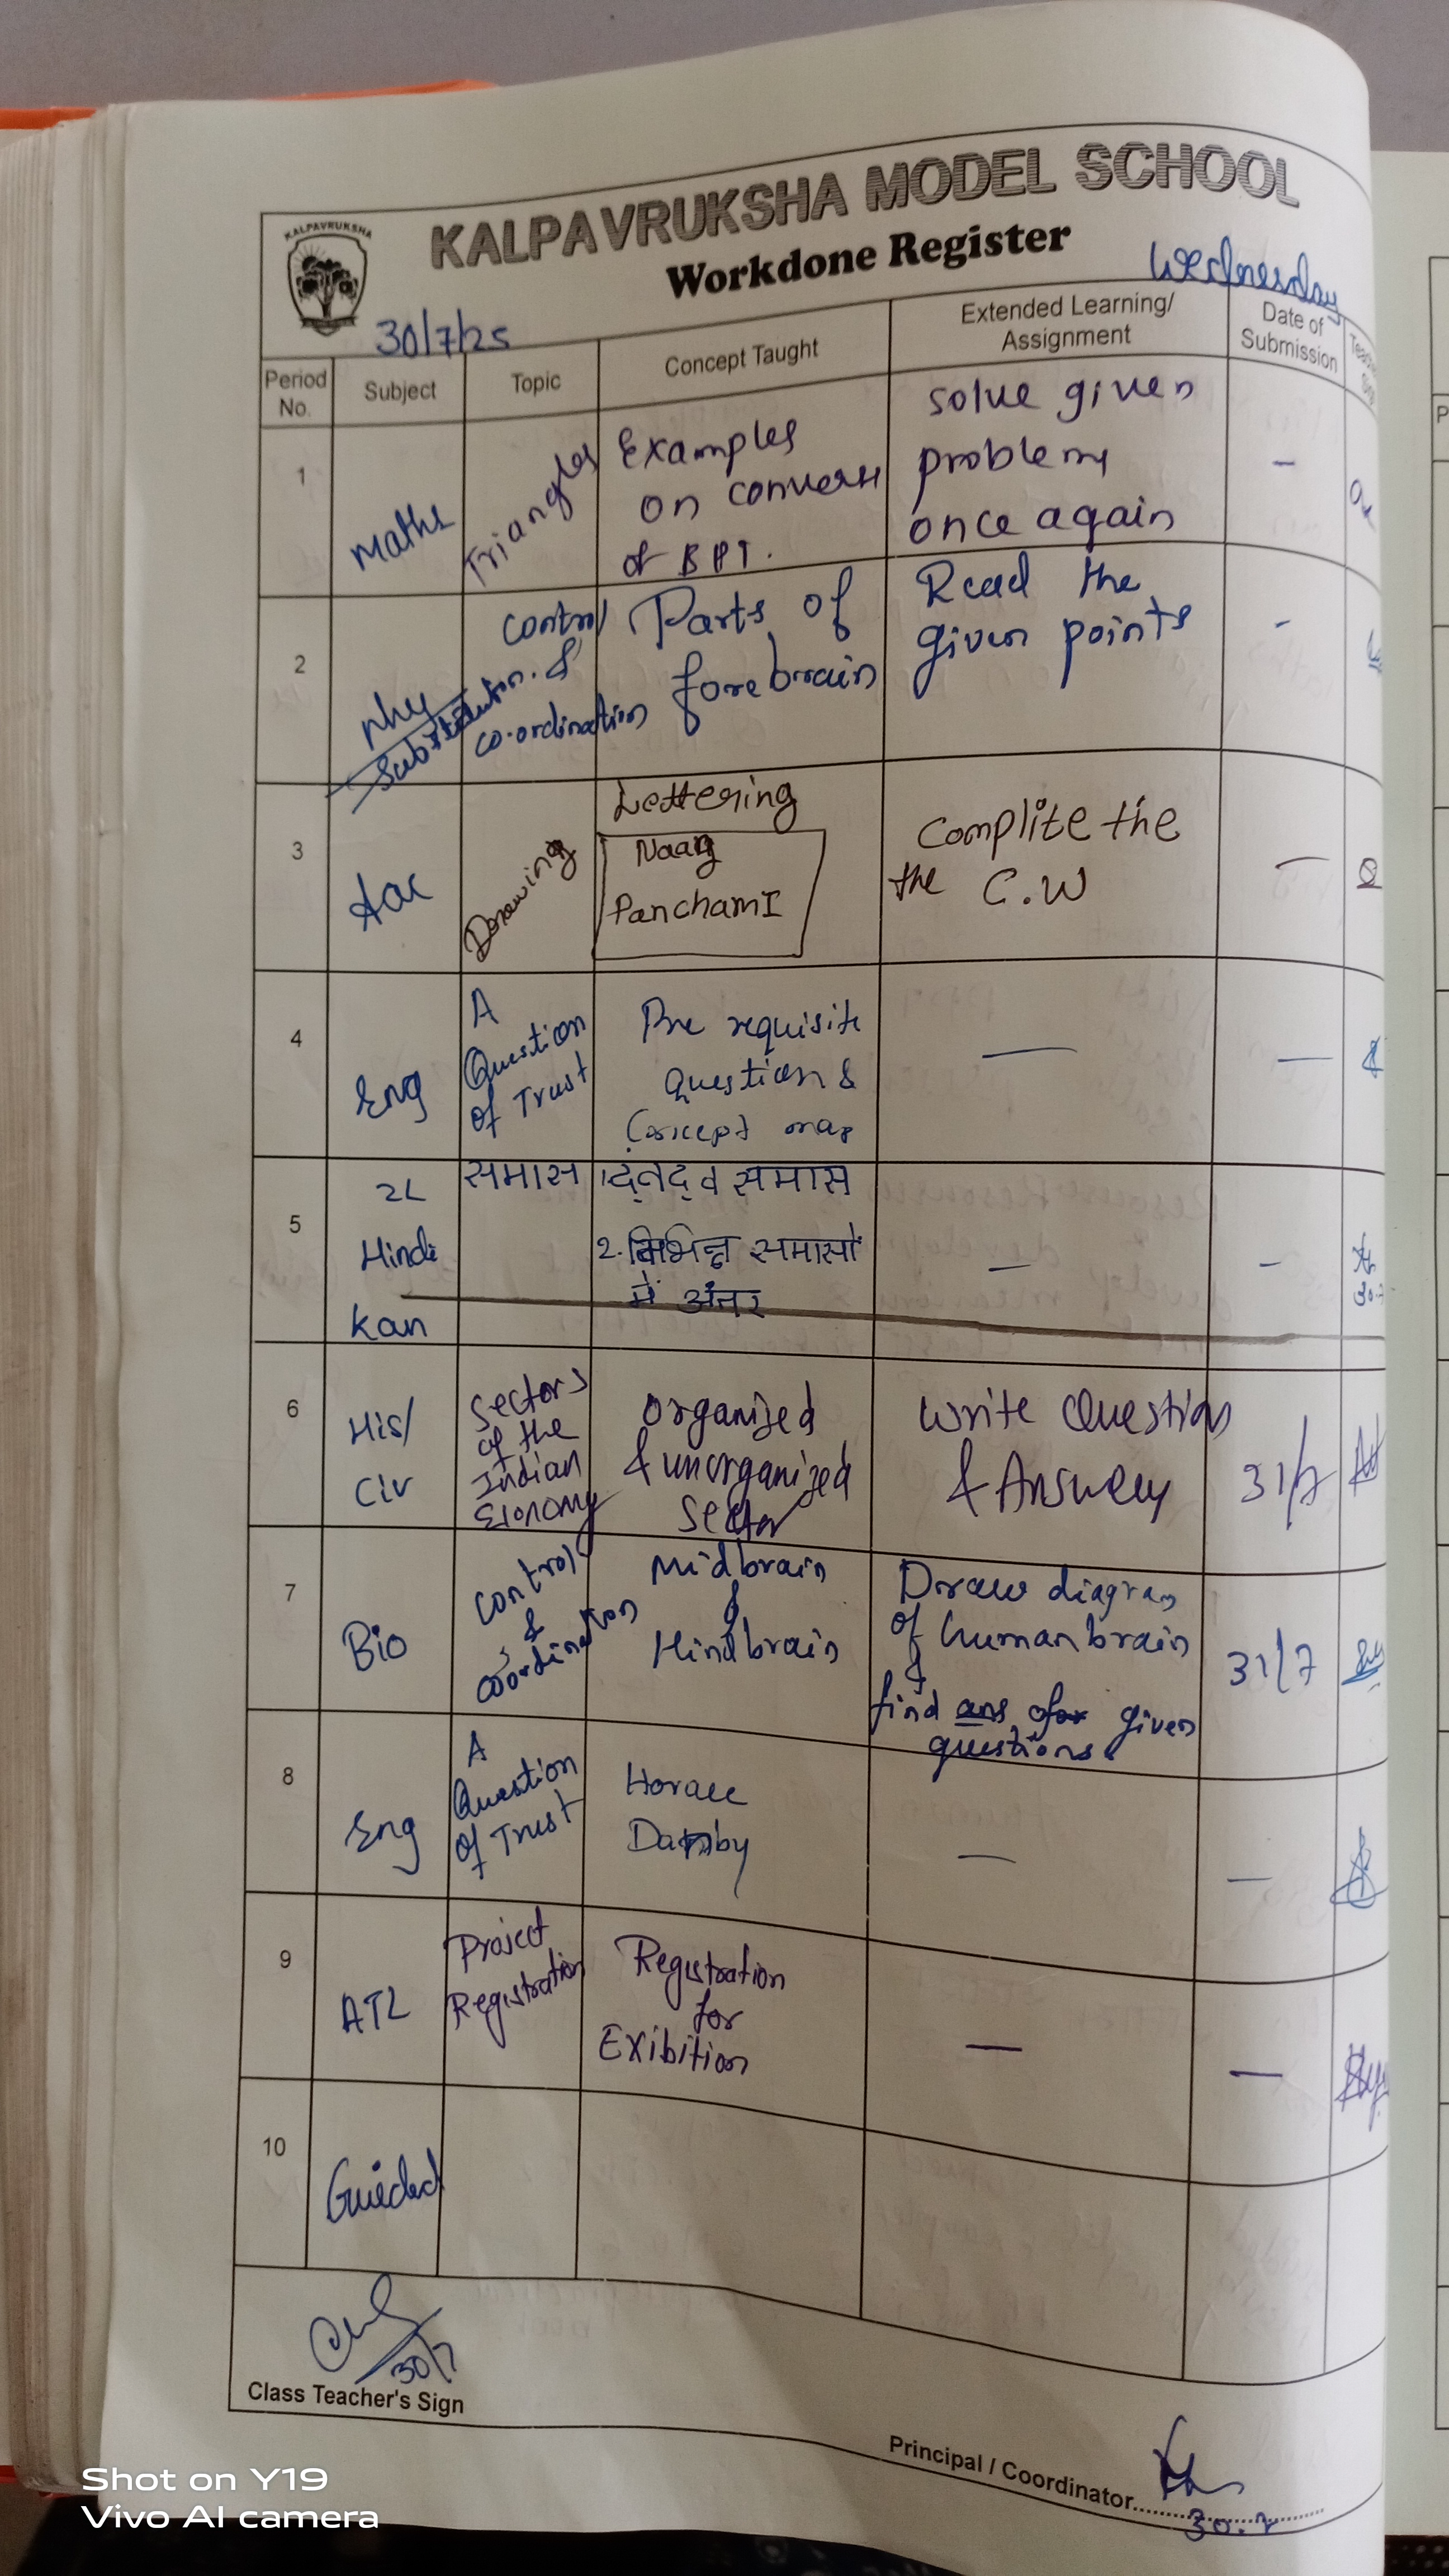 KALPAVRUKSHA
KALPAVRUKSHA MODEL SCHOOL
Workdone Register
30/7/25
Wednesday
Period No.
Subject
Topic
Concept Taught
Extended Learning/ Assignment
Date of Submission
1
Maths
Triangles
Examples
on converse
of BPT.
solve given
problem
once again
-
2
Phy
Substitution.
control
&
co-ordination
Parts of
forebrain
Read the
given points
-
3
Drawing
Lettering
Naag
PanchamI
Complite the
the C.W
-
4
Eng
A
Question
of Trust
Pre requisite
question &
Concept map
-
-
5
2L
Hindi
Kan
समास
द्वंद्व समास
2. विभिन्न समासों
में अंतर
-
-
6
His/
Civ
Sectors
of the
Indian
Economy
Organized
& unorganized
Sector
Write Question
& Answer
31/7
7
Bio
Control
&
coordination
Midbrain
&
Hindbrain
Draw diagram
of human brain
&
find ans of given
questions.
31/7
8
Eng
A
Question
of Trust
Horace
Danby
-
-
9
ATL
Project
Registration
Registration
for
Exibition
-
-
10
Guided
30/7
Class Teacher's Sign
Principal / Coordinator
30.7
Shot on Y19
Vivo AI camera